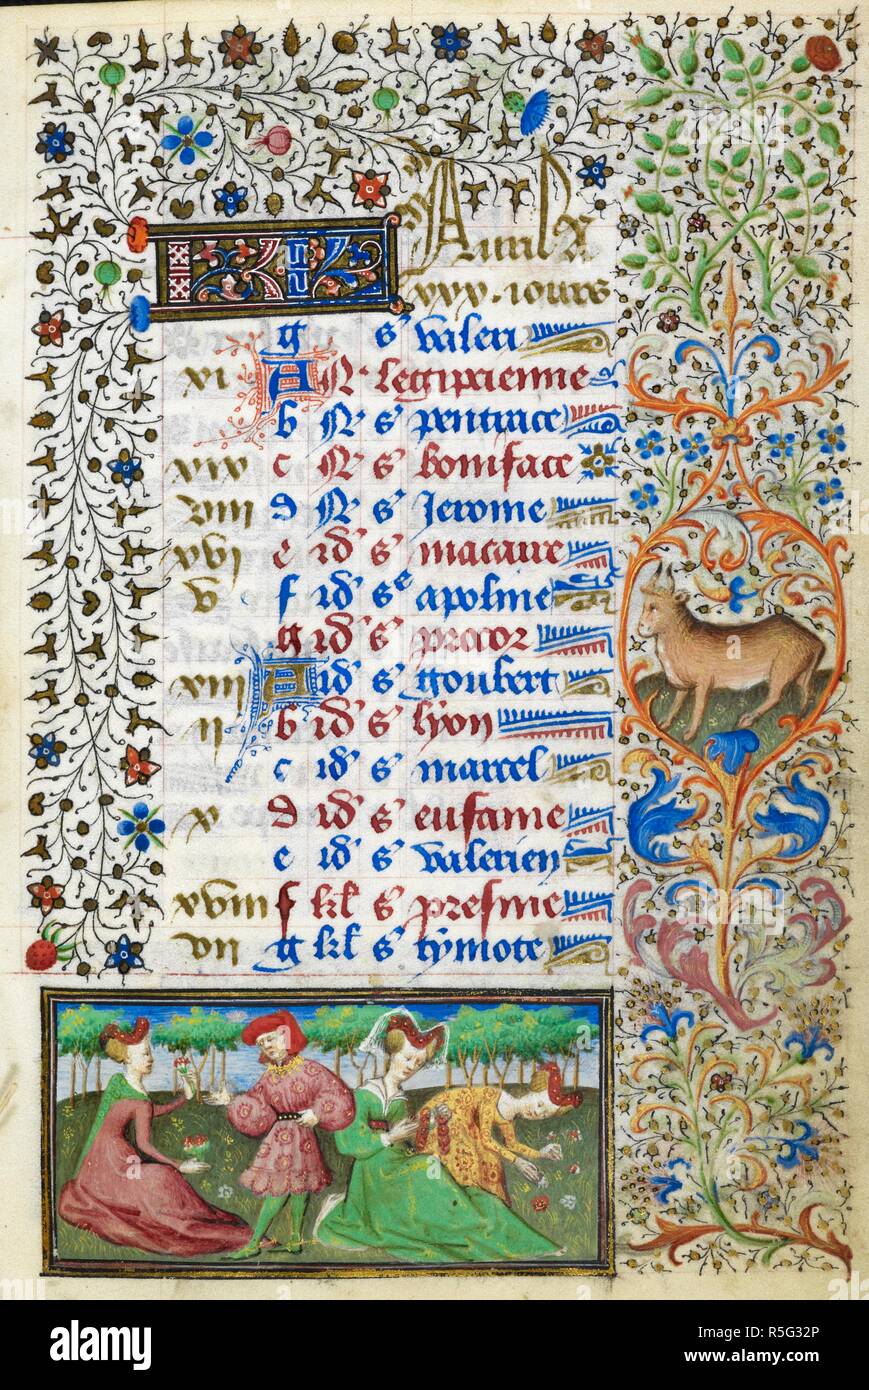 KL Auril A
xxx. iours
g s valeri
xi A N legipcienne
b N s pentrace
xix c N s boniface
viii d N s Jerome
xvi e id s macaire
v f id se apoline
g id s procor
xiii A id s goubert
ii b id s lyon
c id s marcel
x d id s eufame
e id s valerien
xviii f kl s presme
vii g kl s tymote
alamy
alamy
alamy
Image ID: R5G32P
www.alamy.com